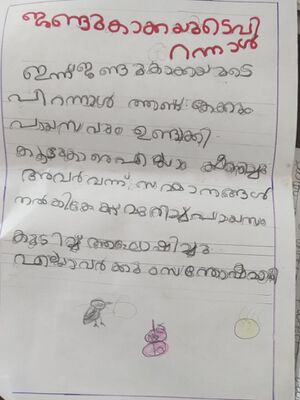 ജണ്ടുകാക്കയുടെപി
റന്നാൾ
ഇന്ന് ജണ്ടുകാക്കയുടെ
പിറന്നാൾ ആണ്. കേക്കും
പായസവും ഉണ്ടാക്കി
കൂട്ടുകാരെ ക്ഷണിച്ചു
അവർ വന്ന് സമ്മാനങ്ങൾ
നൽകി കേക്ക് മുറിച്ചു പായസം
കുടിച്ച് ആഘോഷിച്ചു
എല്ലാവർക്കും സന്തോഷമായി